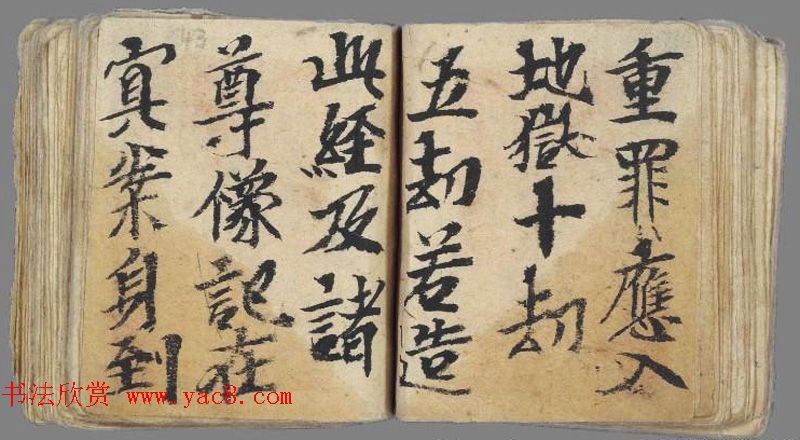 重罪應入
地獄十劫
五劫若造
此經及諸
尊像記在
冥案身到
43
书法欣赏 www.yac8.com